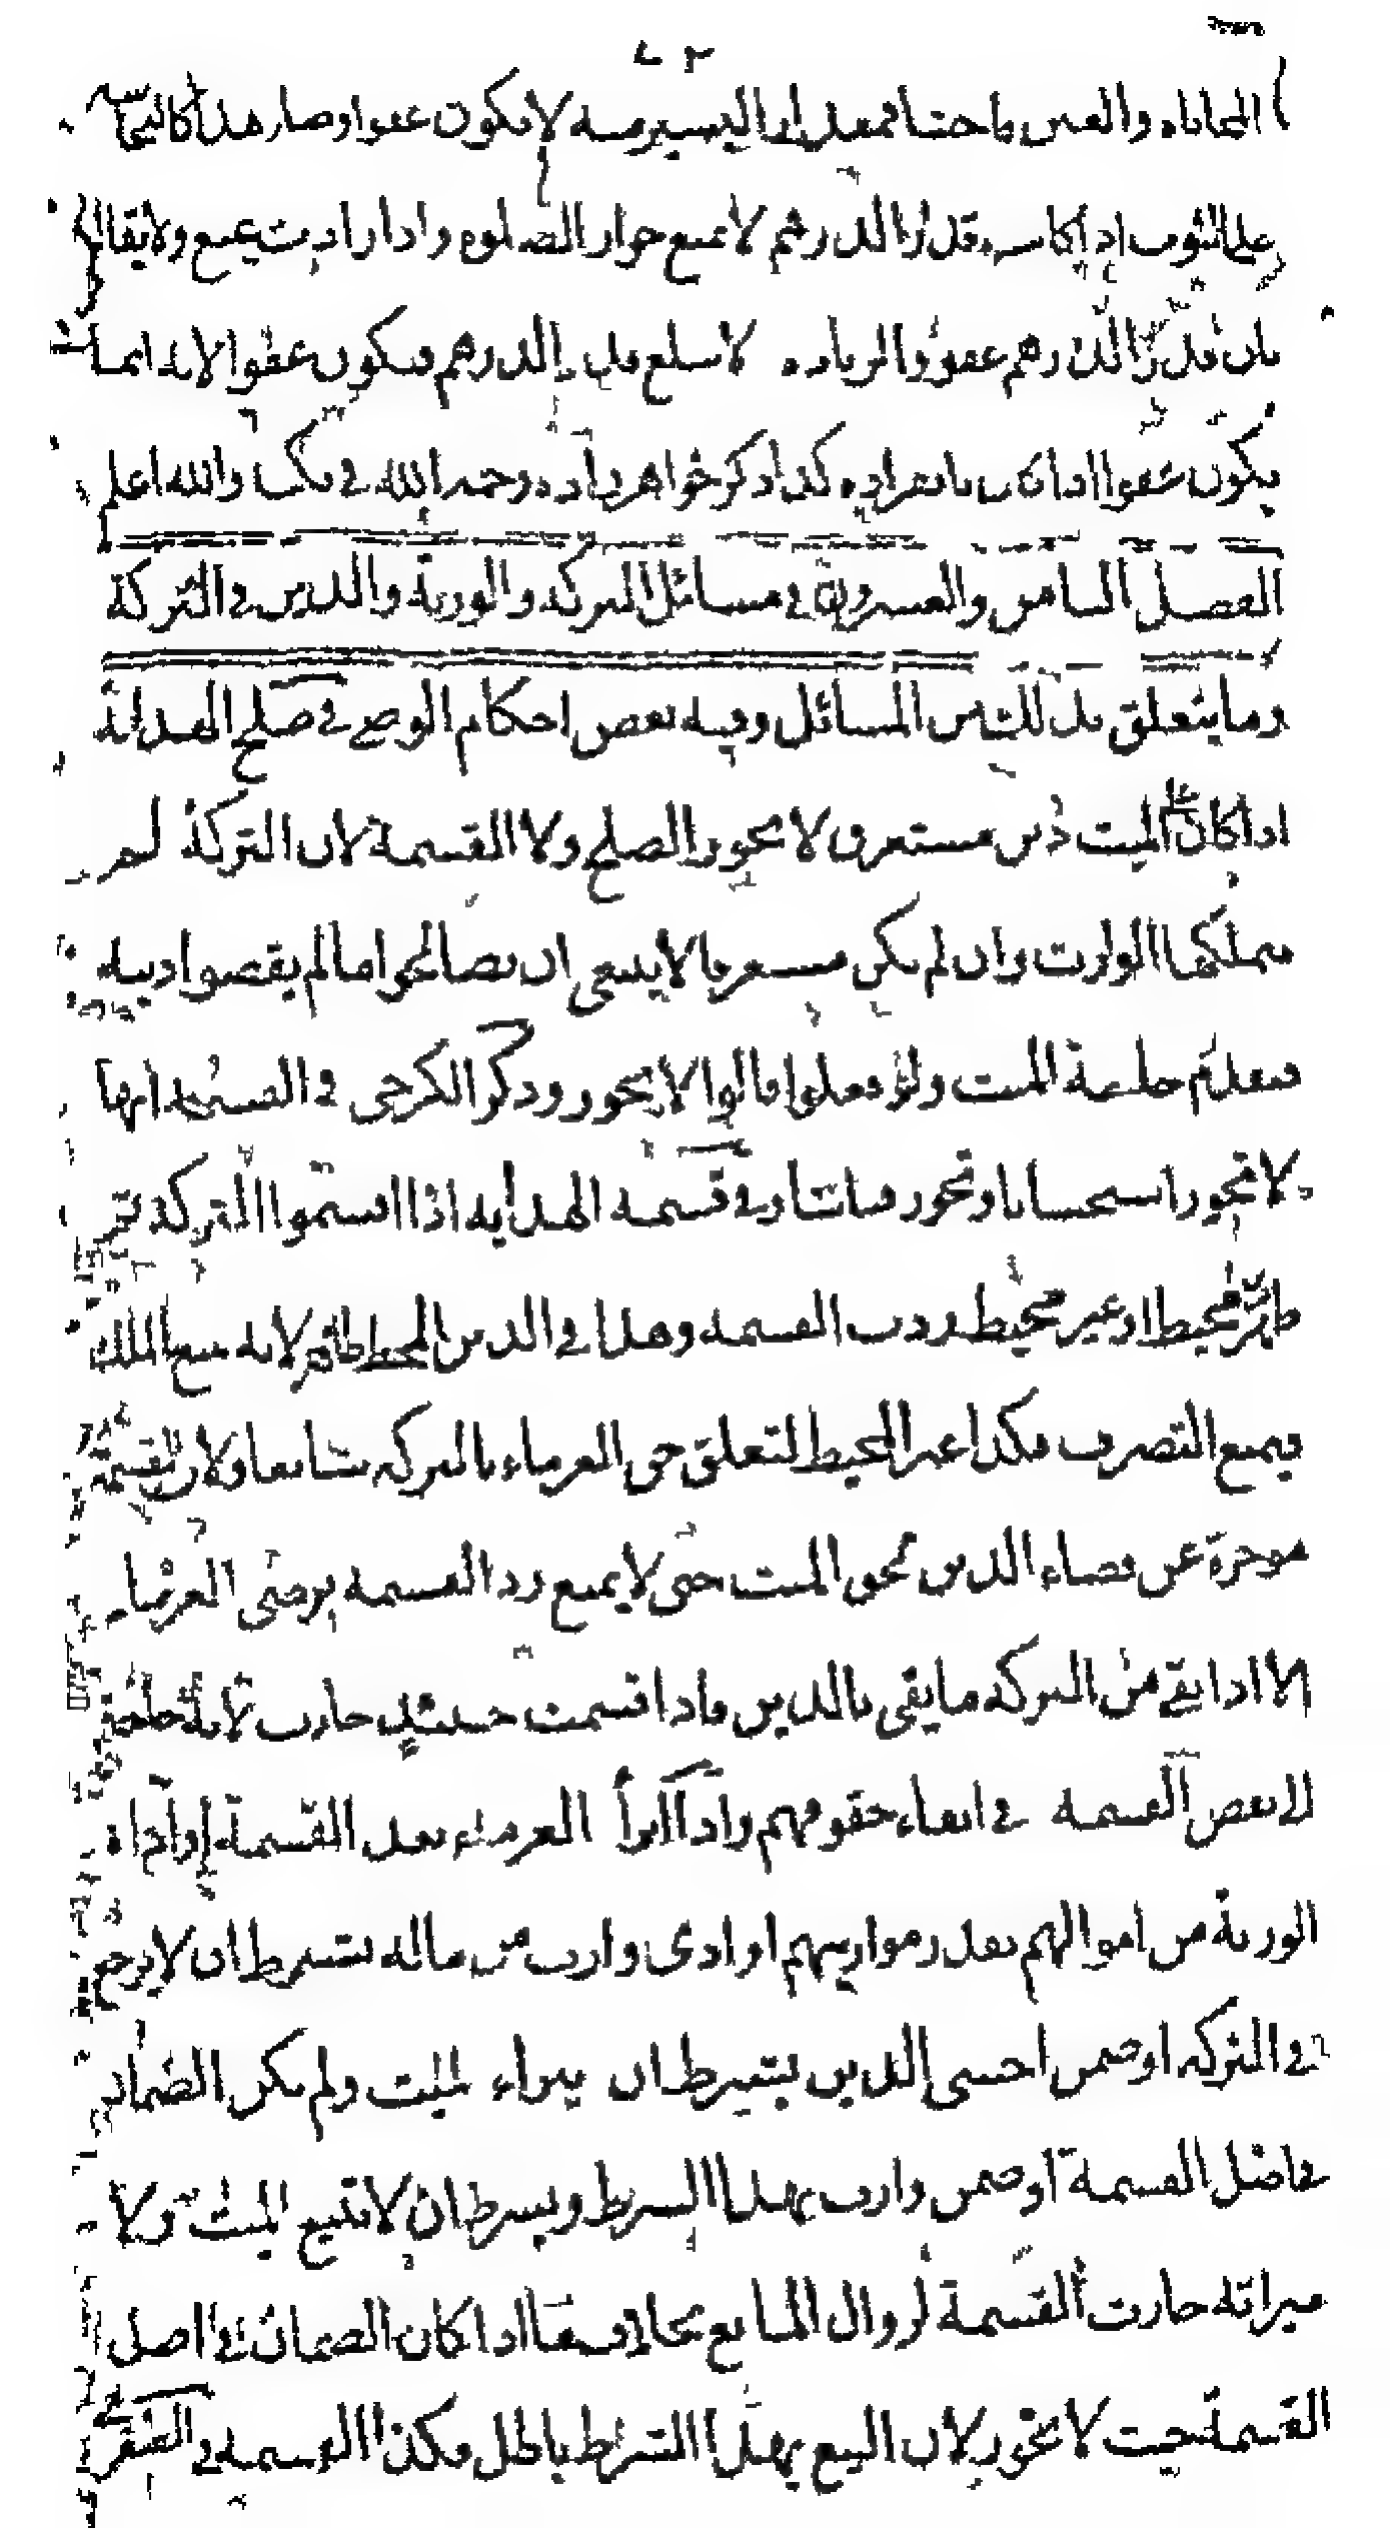 المحاباة والغبن فاحشا فبمقدار اليسير منه لا يكون عفوا وصار هذا كالنجاسة
على الثوب اذا كانت قدر الدرهم لا يمنع جواز الصلوة واذا زادت يمنع ولا يقال
بان قدر الدرهم عفو والزيادة لا يبلغ قدر الدرهم فيكون عفوا لانه انما
يكون عفوا اذا كان بانفراده كذا ذكر خواهر زاده رحمه الله في والله اعلم
الفصل الثامن والعشرون في مسائل التركة والورثة والدين في التركة
وما يتعلق بذلك من المسائل وفيه بعض احكام الوصي في صلح الهداية
اذا كان على الميت دين مستغرق لا يجوز الصلح ولا القسمة لان التركة لم
يملكها الوارث وان لم يكن مستغرقا لا ينبغي ان يصالحوا ما لم يقضوا دينه
فتقدم حاجة الميت ولو فعلوا قالوا لا يجوز وذكر الكرخي في القسمة انها
لا تجوز استحسانا وتجوز قياسا وفي قسمة الهداية اذا اقتسموا التركة ثم
ظهر محيط او غير محيط ردت القسمة وهذا في الدين المحيط ظاهر لانه يمنع الملك
فيمنع التصرف فكذا غير المحيط لتعلق حق الغرماء بالتركة شائعا ولان القسمة
موخرة عن قضاء الدين لحق الميت حتى لا يمنع رد القسمة برضى الغرماء
الا اذا بقي من التركة ما يفي بالدين فاذا قسمت حينئذ جازت لانه لا حاجة
الى نقض القسمة في ايفاء حقوقهم واذا ابرأ الغرماء بعد القسمة او اداه
الورثة من اموالهم بقدر مواريثهم او ادى وارث من ماله بشرط ان لا يرجع
في التركة او ضمن اجنبي الدين بشرط ان يبراء الميت ولم يكن الضمان
في اصل القسمة او ضمن وارث بهذا الشرط وبشرط ان لا يتبع الميت ولا
ميراثه جازت القسمة لزوال المانع بخلاف ما اذا كان الضمان في اصل
القسمة حيث لا يجوز لان البيع بهذا الشرط باطل فكذا القسمة في الصغرى